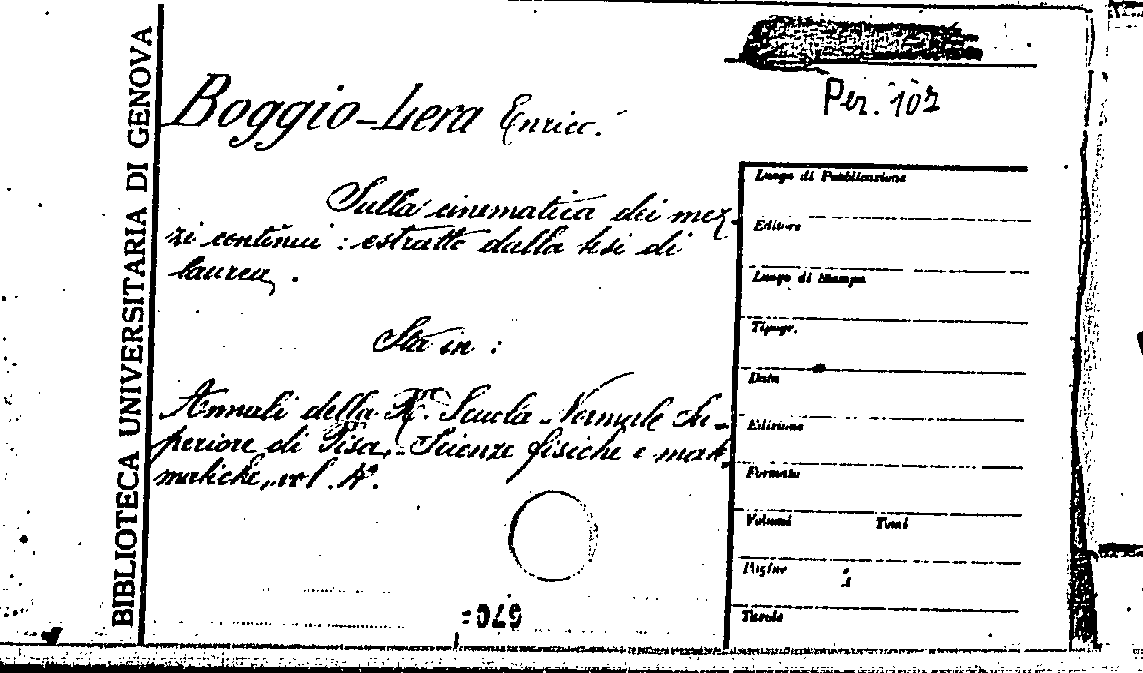 BIBLIOTECA UNIVERSITARIA DI GENOVA
Per. 102
Boggio-Lera Enrico.
Sulla cinematica dei mez-
zi continui : estratto dalla tesi di
laurea.
Sta in :
Annali della R. Scuola Normale Su-
periore di Pisa, Scienze fisiche e mat.
matiche, vol. 4°.
049
Luogo di Pubblicazione
Editore
Luogo di Stampa
Tipogr.
Data
Edizione
Formato
Volumi Tomi
Pagine
Tavole